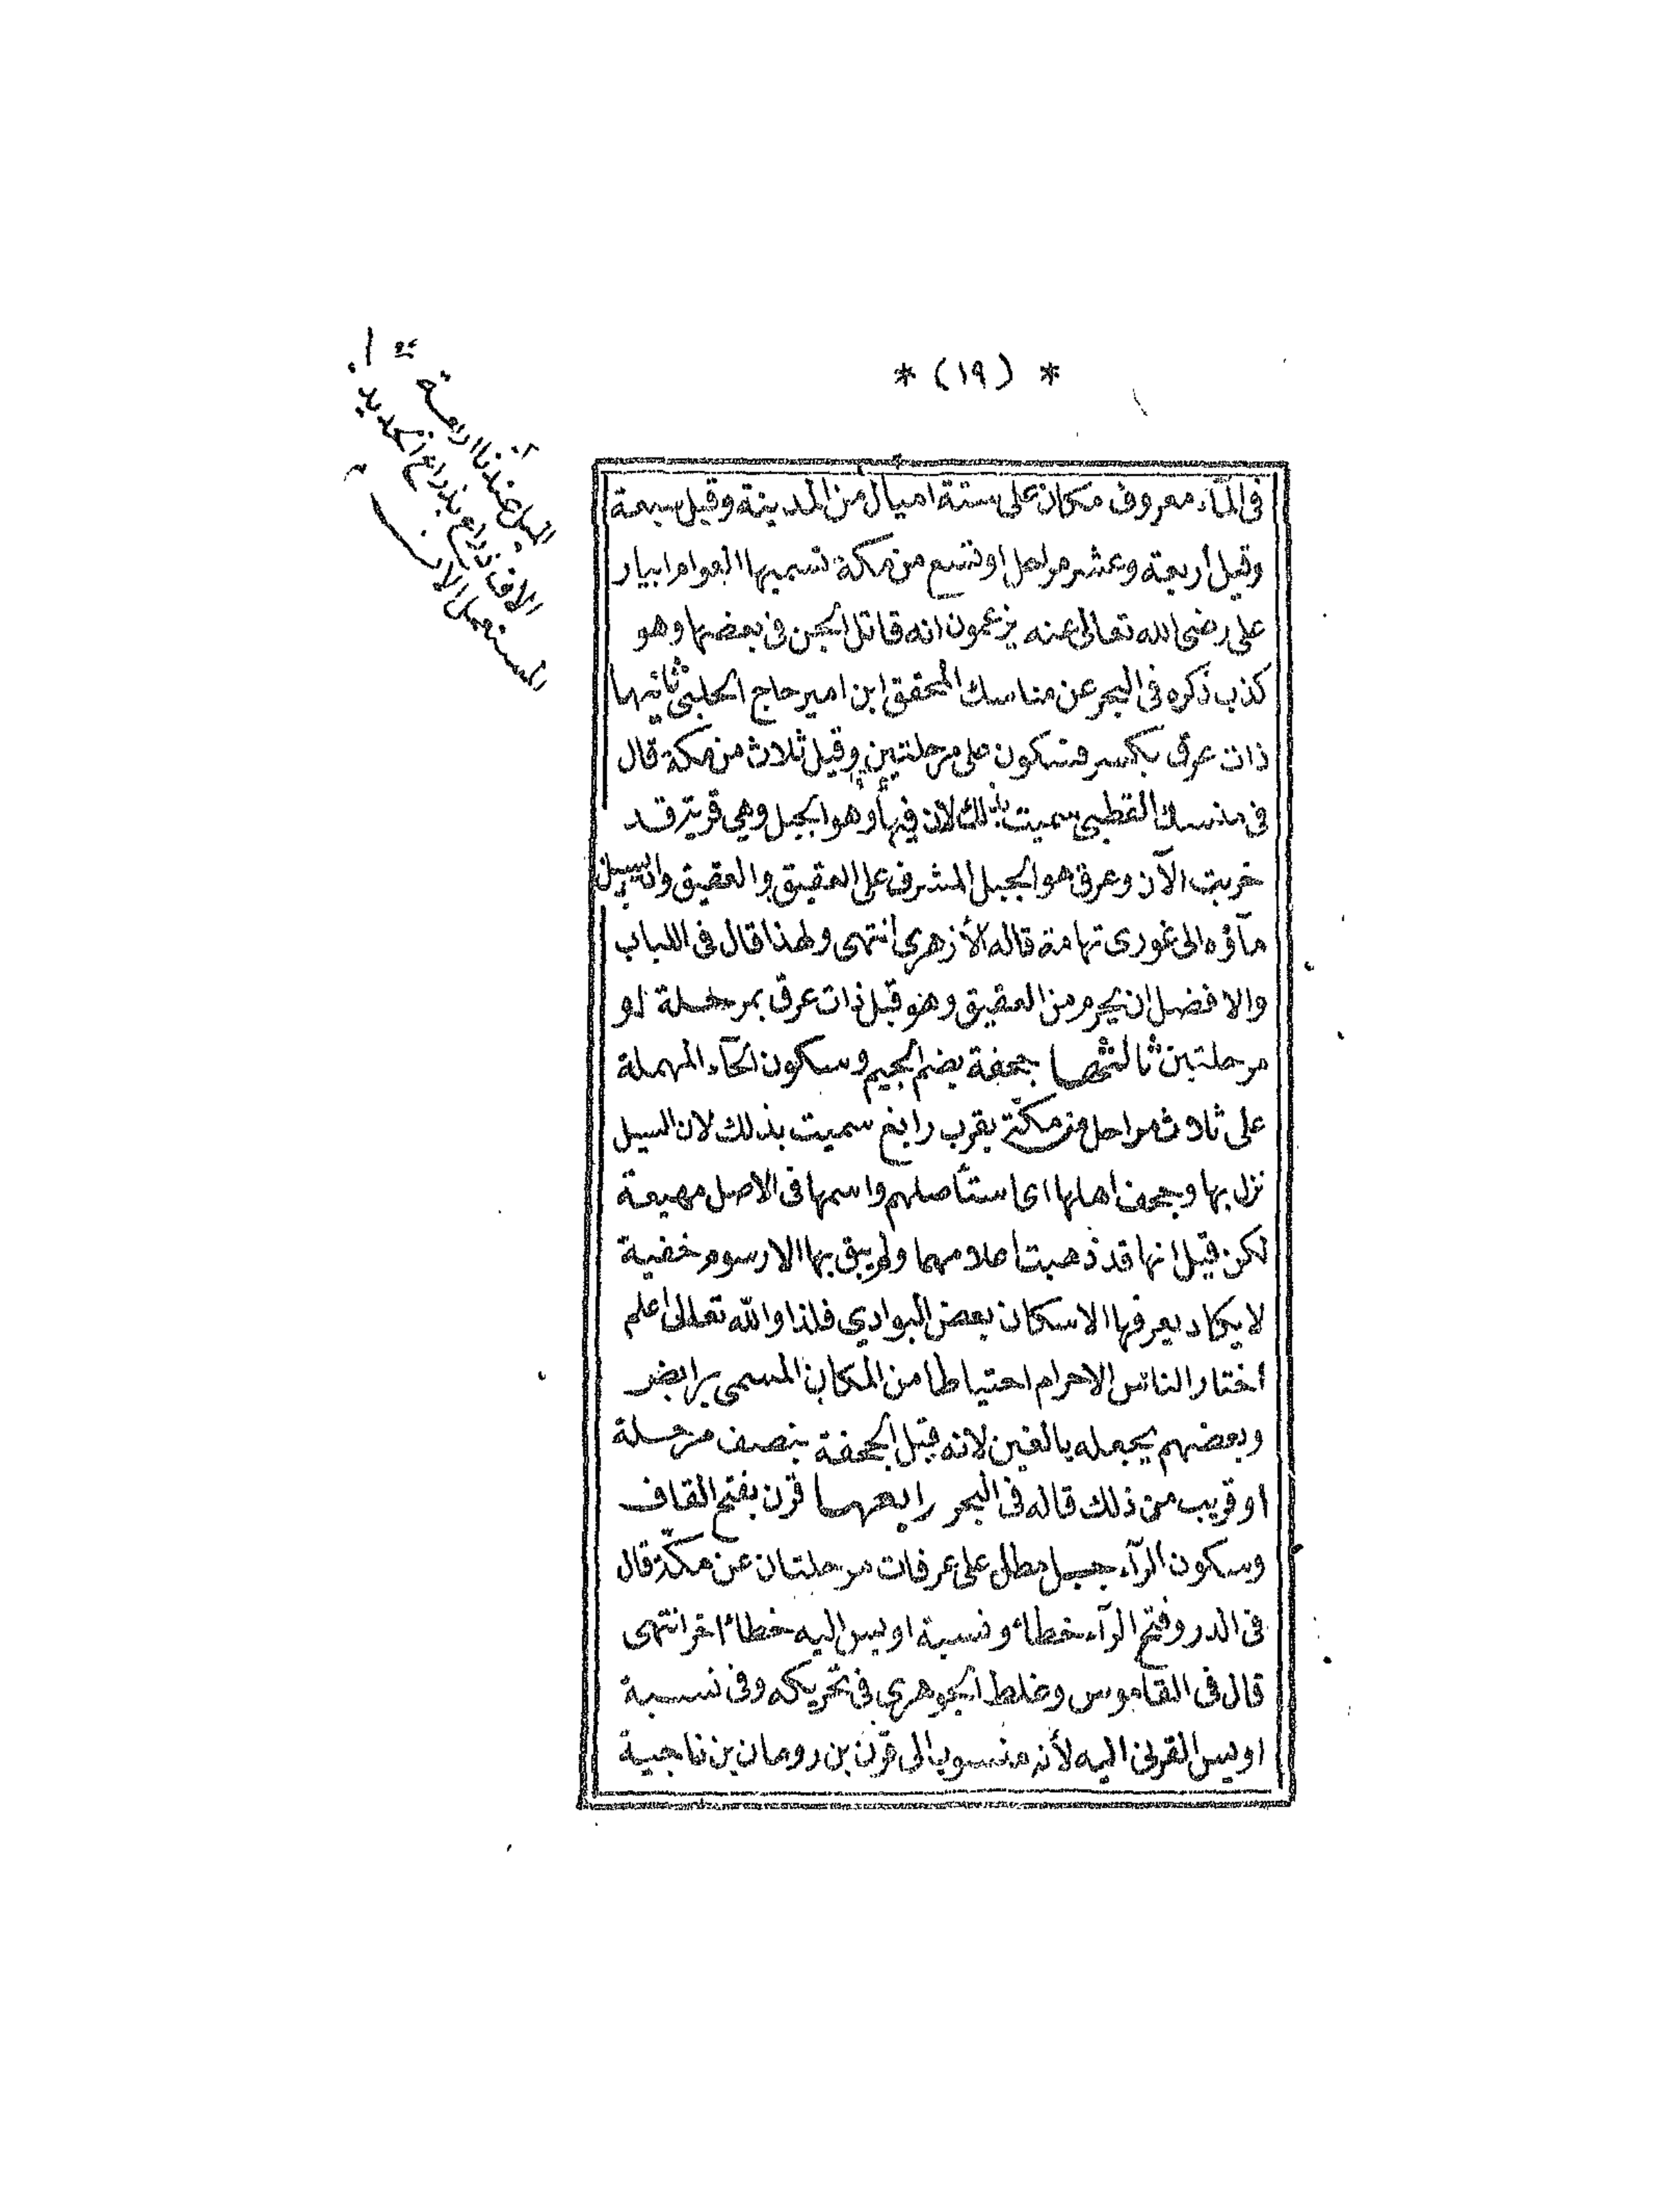 * (١٩) *
فى المآء معروف مكان على ستة اميال من المدينة وقيل سبعة
وقيل أربعة وعشر مراحل او تسع من مكة تسميها العوام ابيار
على رضى الله تعالى عنه يزعمون انه قاتل الجن فى بعضها وهو
كذب ذكره فى البحر عن مناسك المحقق ابن امير حاج الحلبى ثانيها
ذات عرق بكسر فسكون على مرحلتين وقيل ثلاث من مكة قال
فى منسك القطبى سميت بذلك لان فيها وهو الجبل وهي قرية قد
خربت الآن وعرق هو الجبل المشرف على العقيق والعقيق واد يسيل
مآؤه الى غورى تهامة قاله الأزهري انتهى ولهذا قال فى اللباب
والافضل ان يحرم من العقيق وهو قبل ذات عرق بمرحلة او
مرحلتين ثالثها جحفة بضم الجيم وسكون الحآء المهملة
على ثلاث مراحل من مكة بقرب رابغ سميت بذلك لان السيل
نزل بها وجحف اهلها اى استأصلهم واسمها فى الاصل مهيعة
لكن قيل انها قد ذهبت اعلامها ولم يبق بها الا رسوم خفية
لا يكاد يعرفها الا سكان بعض البوادي فلذا والله تعالى اعلم
اختار الناس الاحرام احتياطا من المكان المسمى برابض
وبعضهم يجعله بالغين لانه قبل الجحفة بنصف مرحلة
او قريب من ذلك قاله فى البحر رابعها قرن بفتح القاف
وسكون الرآء جبل مطل على عرفات مرحلتان عن مكة قال
فى الدر وفتح الرآء خطاء ونسبة اويس اليه خطاء اخر انتهى
قال فى القاموس وغلط الجوهري فى تحريكه وفى نسبة
اويس القرنى اليه لأنه منسوب الى قرن بن رومان بن ناجية
الميل عندنا اربعة
الاف ذراع بذراع الحديد
المستعمل الان